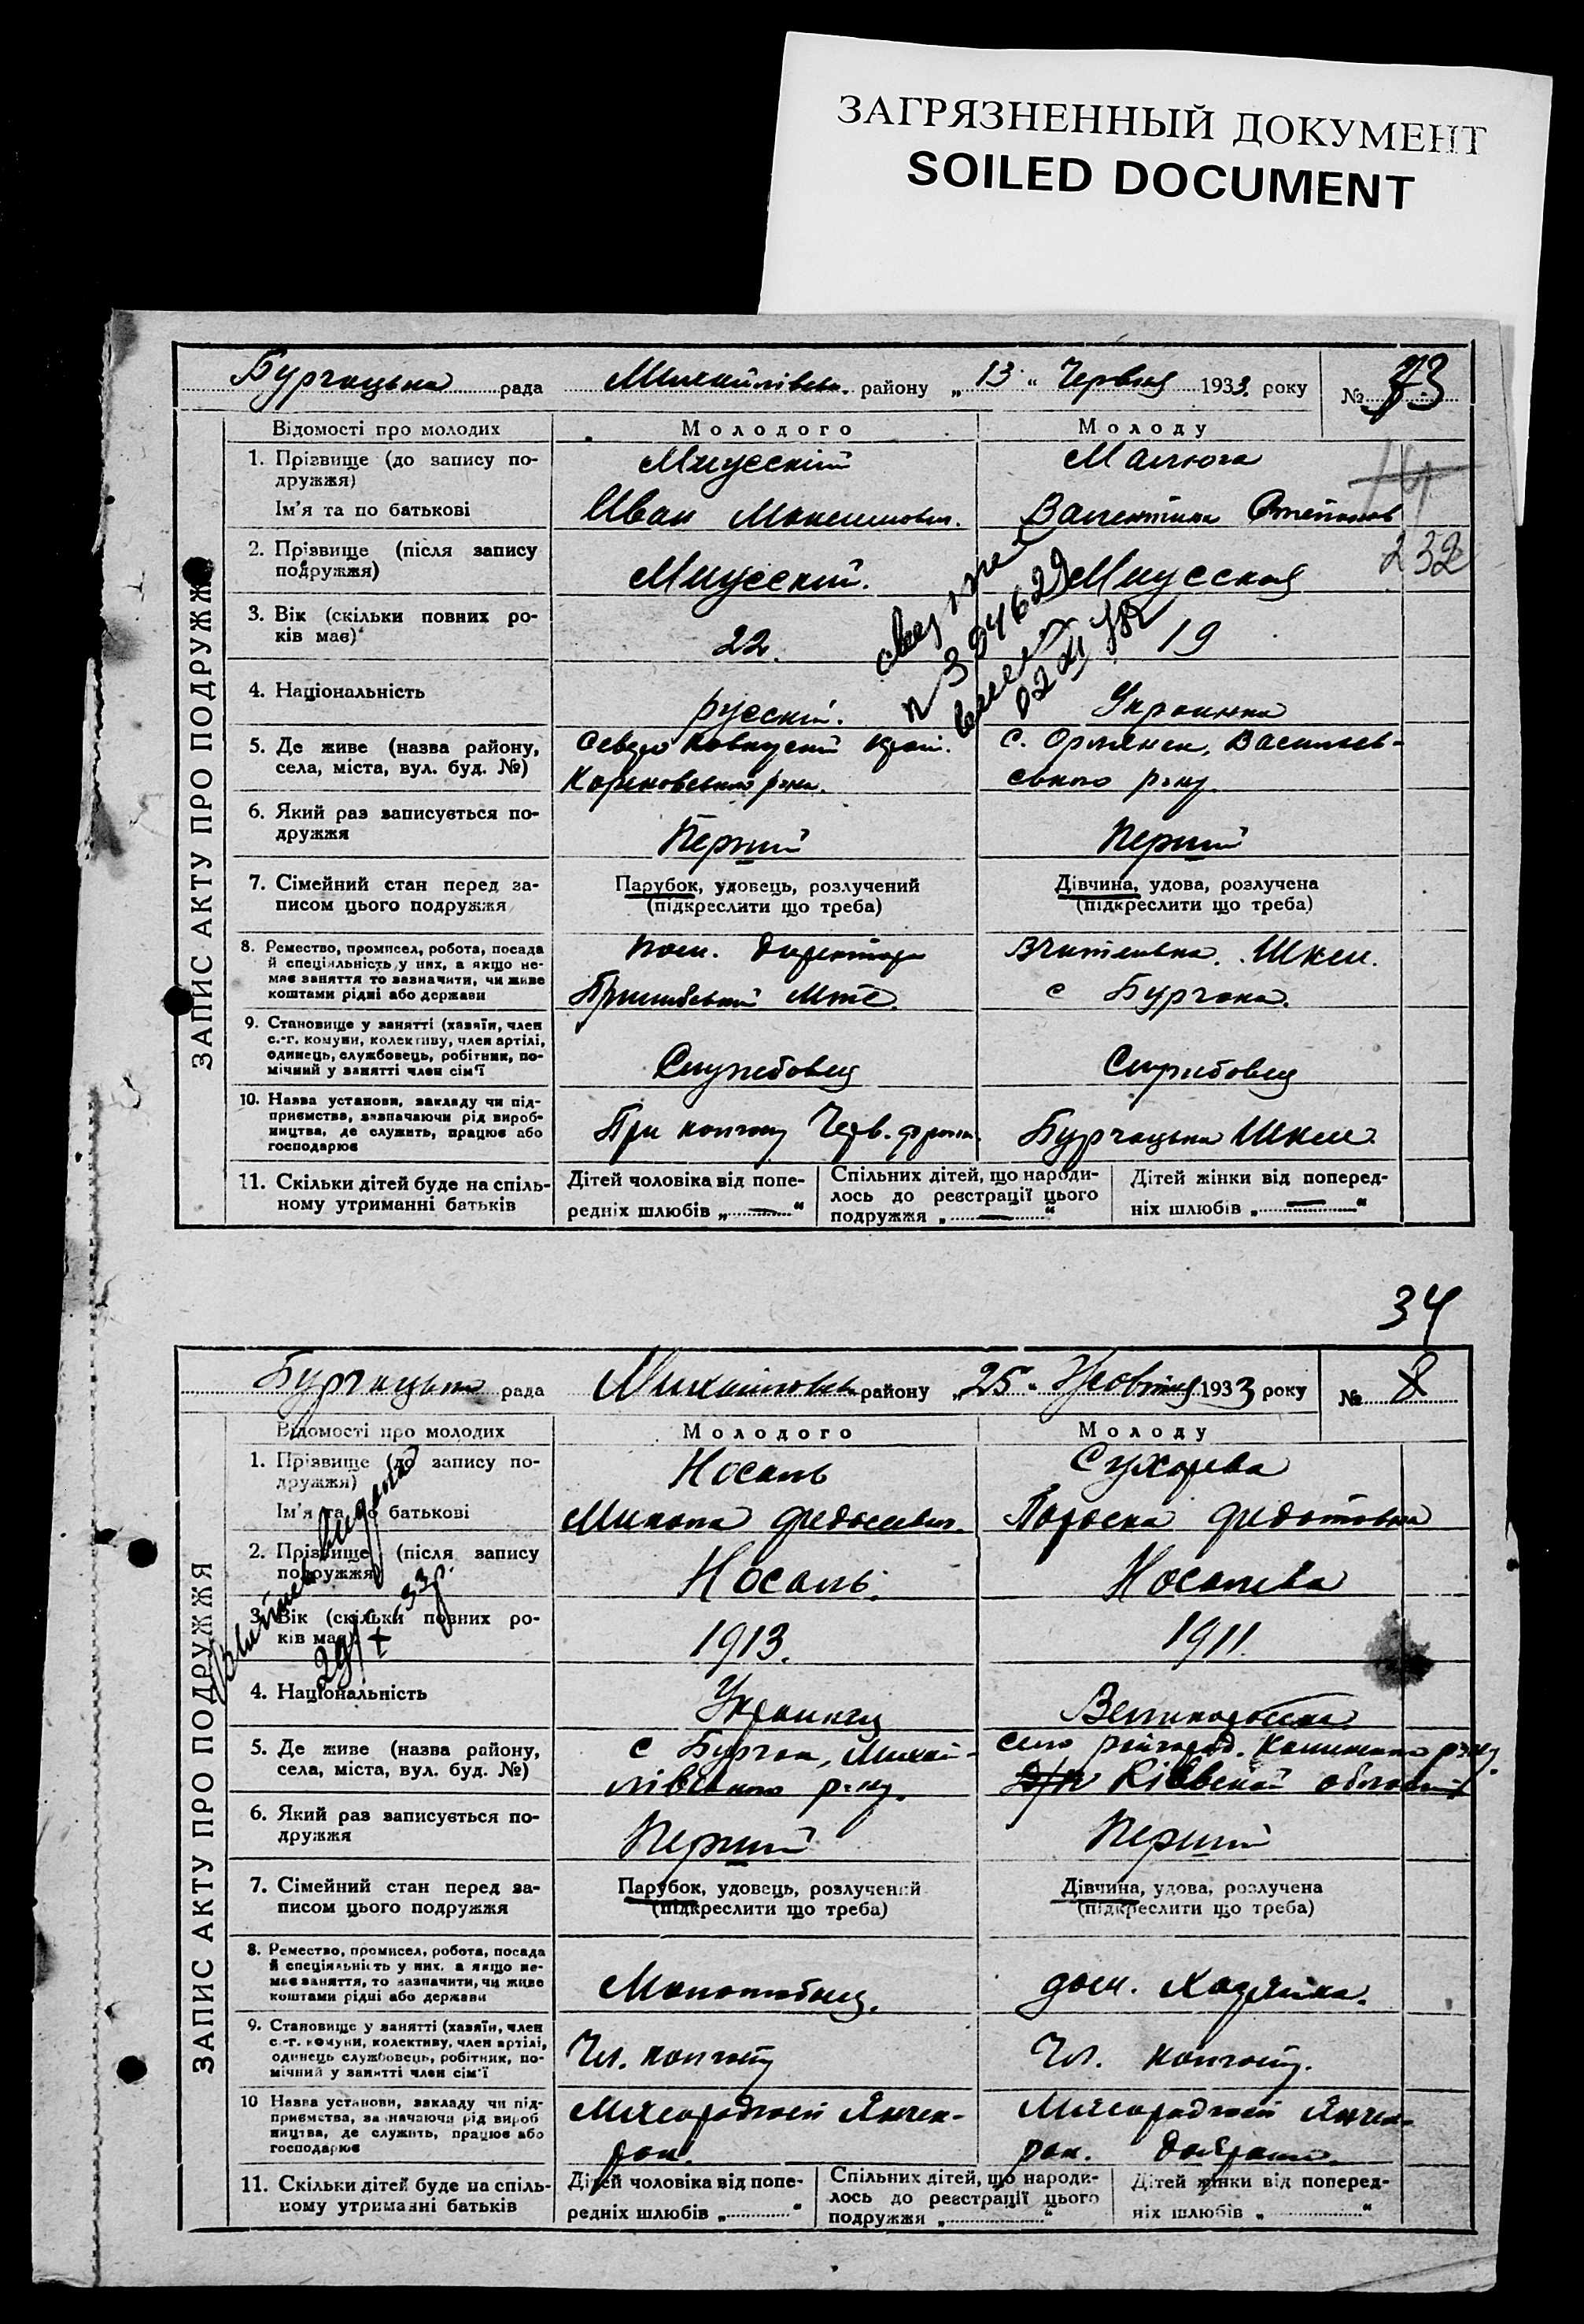 ЗАГРЯЗНЕННЫЙ ДОКУМЕНТ
SOILED DOCUMENT
Бурчацька рада Михайлівськ. району „13“ Червня 1933. року № 73
ЗАПИС АКТУ ПРО ПОДРУЖЖЯ
Відомості про молодих Молодого Молоду
1. Прізвище (до запису по-
дружжя)
Миусский
Ім'я та по батькові
Иван Максимович.
Валентина
2. Прізвище (після запису
подружжя)
Миусский. Миусская
232
3. Вік (скільки повних ро-
ків має)
22. 19
4. Національність
русский. Украинка
5. Де живе (назва району,
села, міста, вул. буд. №)
Северо Кавказский край.
Кореновського р-на.
с. Васильев-
ського р-ну.
6. Який раз записується по-
дружжя
Перший Перший
7. Сімейний стан перед за-
писом цього подружжя
Парубок, удовець, розлучений
(підкреслити що треба)
Дівчина, удова, розлучена
(підкреслити що треба)
8. Ремество, промисел, робота, посада
й спеціяльність у них, а якщо не-
має заняття то зазначити, чи живе
коштами рідні або держави
пом. директора
Пришибський МТС.
Вчителька. Шкли.
с Бурчака.
9. Становище у занятті (хазяїн, член
с.-г. комуни, колективу, член артілі,
одинець, службовець, робітник, по-
мічний у занятті член сім'ї
Службовец Службовец
10. Назва установи, закладу чи під-
приємства, зазначаючи рід вироб-
ництва, де служить, працює або
господарює
При колгоспу Черв.
Бурчацька Шкли
11. Скільки дітей буде на спіль-
ному утриманні батьків
Дітей чоловіка від попе-
редніх шлюбів „ — “
Спільних дітей, що народи-
лось до реєстрації цього
подружжя „ — “
Дітей жінки від поперед-
ніх шлюбів „ — “
34
Бурчацька рада району „25“ Жовтня 1933 року № 8
ЗАПИС АКТУ ПРО ПОДРУЖЖЯ
Відомості про молодих Молодого Молоду
1. Прізвище (до запису по-
дружжя)
Носаль Сухарева
Ім'я та по батькові
Микола Федосеевич.
Федотовна
2. Прізвище (після запису
подружжя)
Носаль. Носалева
3. Вік (скільки повних ро-
ків має
1913. 1911.
4. Національність
Украинец Великоросска
5. Де живе (назва району,
села, міста, вул. буд. №)
с Бурчак, Михай-
лівського р-ну.
село
Київской области
6. Який раз записується по-
дружжя
Перший Перший
7. Сімейний стан перед за-
писом цього подружжя
Парубок, удовець, розлучений
(підкреслити що треба)
Дівчина, удова, розлучена
(підкреслити що треба)
8. Ремество, промисел, робота, посада
й спеціяльність у них, а якщо не-
має заняття, то зазначити, чи живе
коштами рідні або держави
Молотобоец.
дом. Хазяйка.
9. Становище у занятті (хазяїн, член
с.-г. комуни, колективу, член артілі,
одинець службовець, робітник, по-
мічний у занятті член сім'ї
Чл. колгоспу
Чл. колгоспу.
10 Назва установи, закладу чи під-
приємства, зазначаючи рід вироб
ництва, де служить, працює або
господарює
11. Скільки дітей буде на спіль-
ному утриманні батьків
Дітей чоловіка від попе-
редніх шлюбів „ “
Спільних дітей, що народи-
лось до реєстрації цього
подружжя „ “
Дітей жінки від поперед-
ніх шлюбів „ “